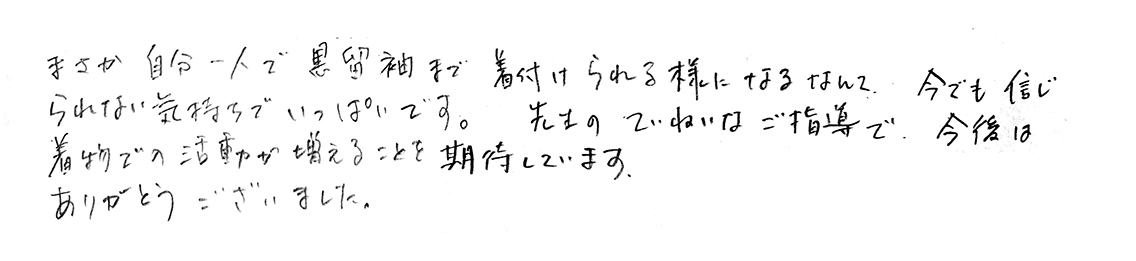 まさか 自分一人で 黒留袖まで 着付けられる様になるなんて、今でも信じ
られない気持ちでいっぱいです。 先生のていねいなご指導で、今後は
着物での活動が増えることを期待しています。
ありがとうございました。